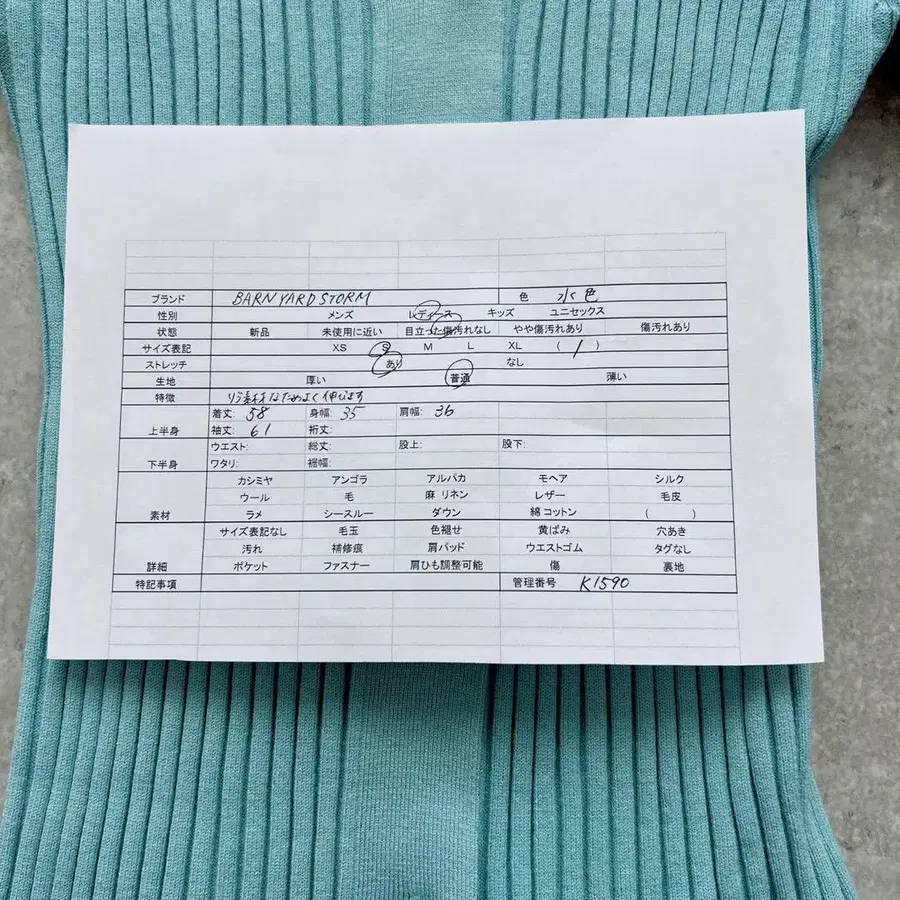 ブランド BARNYARDSTORM 色 水色
性別 メンズ レディース キッズ ユニセックス
状態 新品 未使用に近い 目立った傷汚れなし やや傷汚れあり 傷汚れあり
サイズ表記 XS S M L XL ( 1 )
ストレッチ あり なし
生地 厚い 普通 薄い
特徴 リブ素材なためよく伸びます
着丈: 58 身幅: 35 肩幅: 36
上半身 袖丈: 61 裄丈:
ウエスト: 総丈: 股上: 股下:
下半身 ワタリ: 裾幅:
カシミヤ アンゴラ アルパカ モヘア シルク
ウール 毛 麻 リネン レザー 毛皮
素材 ラメ シースルー ダウン 綿 コットン ( )
サイズ表記なし 毛玉 色褪せ 黄ばみ 穴あき
汚れ 補修痕 肩パッド ウエストゴム タグなし
詳細 ポケット ファスナー 肩ひも調整可能 傷 裏地
特記事項 管理番号 K1590